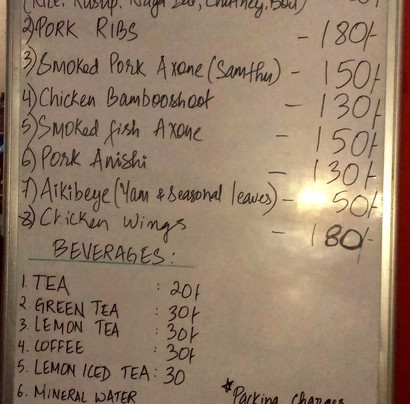 (Rice, Rasup, Naga Dal, Chutney, Boil)
2) PORK RIBS - 180/-
3) Smoked Pork Axone (Samthu) - 150/-
4) Chicken Bambooshoot - 130/-
5) Smoked fish Axone - 150/-
6) Pork Anishi - 130/-
7) Aikibeye (Yam & Seasonal leaves) - 50/-
8) Chicken Wings - 180/-
BEVERAGES:
1. TEA : 20/-
2. GREEN TEA : 30/-
3. LEMON TEA : 30/-
4. COFFEE : 30/-
5. LEMON ICED TEA: 30
6. MINERAL WATER
*Packing charges